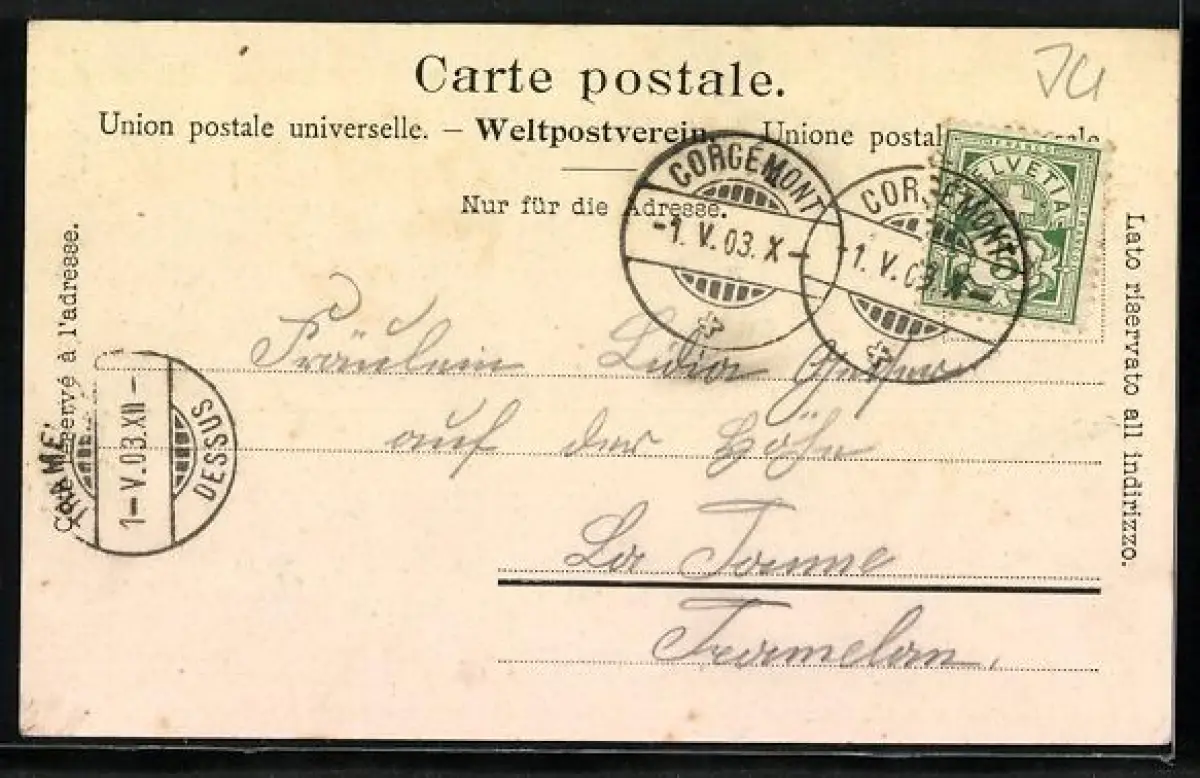 Carte postale.
Union postale universelle. — Weltpostverein. — Unione postale
Nur für die Adresse.
JU
CORGÉMONT
-1. V. 03. X-
CORGÉMONT
-1. V. 03. X-
HELVETIA
Lato riservato all indirizzo.
à l'adresse.
TRAME.
1-V.03.XII-
DESSUS
Fräulein Lidia
auf der Höhe
La Tanne
Tramelan.